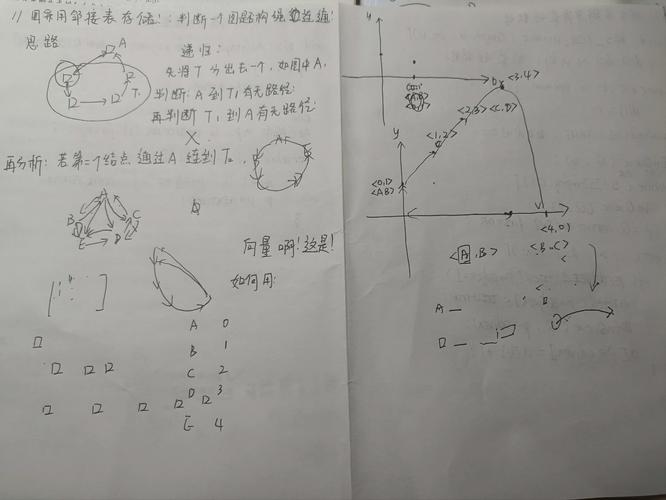 // 图采用邻接表存储:判断一个图的结构是
思路
A
递归:
先将T分出去一个,如图中A,
判断:A到T₁有无路径
再判断T₁到A有无路径
T₁
X
再分析:若第一个结点通过A连到T₂,
A
B
A
B
C
E
D
向量啊!这是!
如何用:
A 0
B 1
C 2
D 3
E 4
y
<A,B>
D
<3,4>
<2,3>
<C,D>
<1,2>
y
<0,1>
<A,B>
<4,0>
<A,B>
<B,C>
A